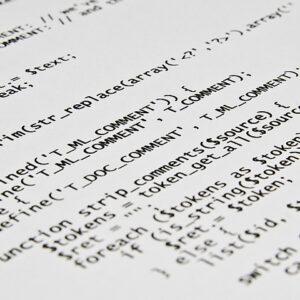 COMMENT: //
COMMENT: //
= $text;
eak;
rim(str_replace(array('<?', '?>'),array('
ined('T_ML_COMMENT')) {
ine('T_ML_COMMENT', T_COMMENT);
e {
efine('T_DOC_COMMENT', T_ML_COMMENT);
unction strip_comments($source) {
$tokens = token_get_all($sour
$ret = "";
foreach ($tokens as $token
if (is_string($token
$ret .= $token;
} else {
list($id, $
switch